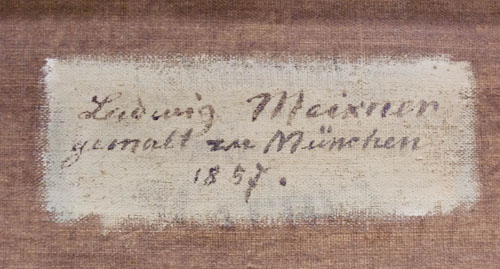 Ludwig Meixner
gemalt zu München
1857.